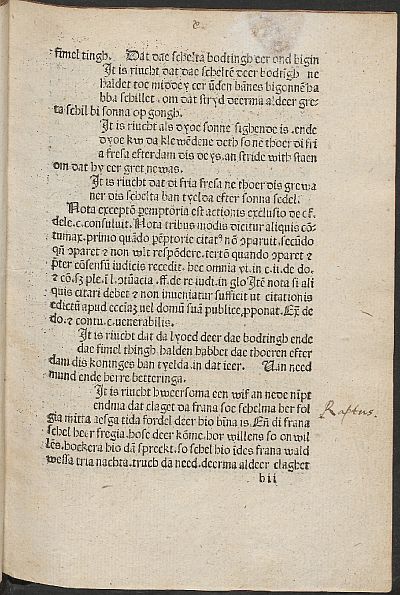 fimel tingh. Dat dae schelta bodtingh eer ond bigin
It is riucht dat dae scheltē deer bodtīgh ne
haldet toe middey eer ūden bānes bigonnē ha
bba schillet. om dat stryd deerma aldeer gre-
ta schil bi sonna op gongh.
It is riucht als dyoe sonne sighende is. ende
dyoe kw da klewēdene deth so ne thoer di fri
a fresa efterdam dis deys. an stride with staen
om dat hy eer gret ne was.
It is riucht dat di fria fresa ne thoer dis grewa
ner dis schelta ban tyelda efter sonna sedel.
Nota exceptō pemptoria est actionis exclusio de
dele. c. consuluit. Nota tribus modis dicitur aliquis cō-
tumax. primo quādo pēptorie citat⁹ nō ꝯparuit. secūdo
qn̄ ꝯparet & non vult respōdere. tertō quando ꝯparet &
p̄ter cōsensū iudicis recedit. hec omnia vi. in c. ii. de do.
& cō. sz ple. ī l. ꝯtūacia. ff. de re iudi. in glo Itē nota si ali
quis citari debet & non inueniatur sufficit ut citationis
edictū apud eccīaz vel domū suā publice, pponat. Ex̄ de
do. & contu. c. venerabilis.
It is riucht dat da lyoed deer dae bodtingh ende
dae fimel thingh. halden habbet dae thoeren efter
dam dis koninges ban tyelda. in dat ieer. Uan need
mund ende herre betteringa.
It is riucht hweersoma een wif an nede nīpt
endma dat claget da frana soe schelma her fol
gia mitta aesga tida fordel deer bio bīna is. Eñ di frana
schel heer fregia. hose deer kōme. hor willens so on wil
lēs. hoekera hio dā spreckt. so schel hio īdes frana wald
wessa tria nachta. truch dā need. deerma aldeer claghet
b ii
Raptus.